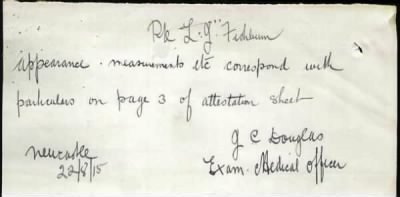 Pte L. G. Fishburn
appearance. measurements etc correspond with
particulars on page 3 of attestation sheet
G C Douglas
Newcastle
Exam. Medical Officer
22/8/15